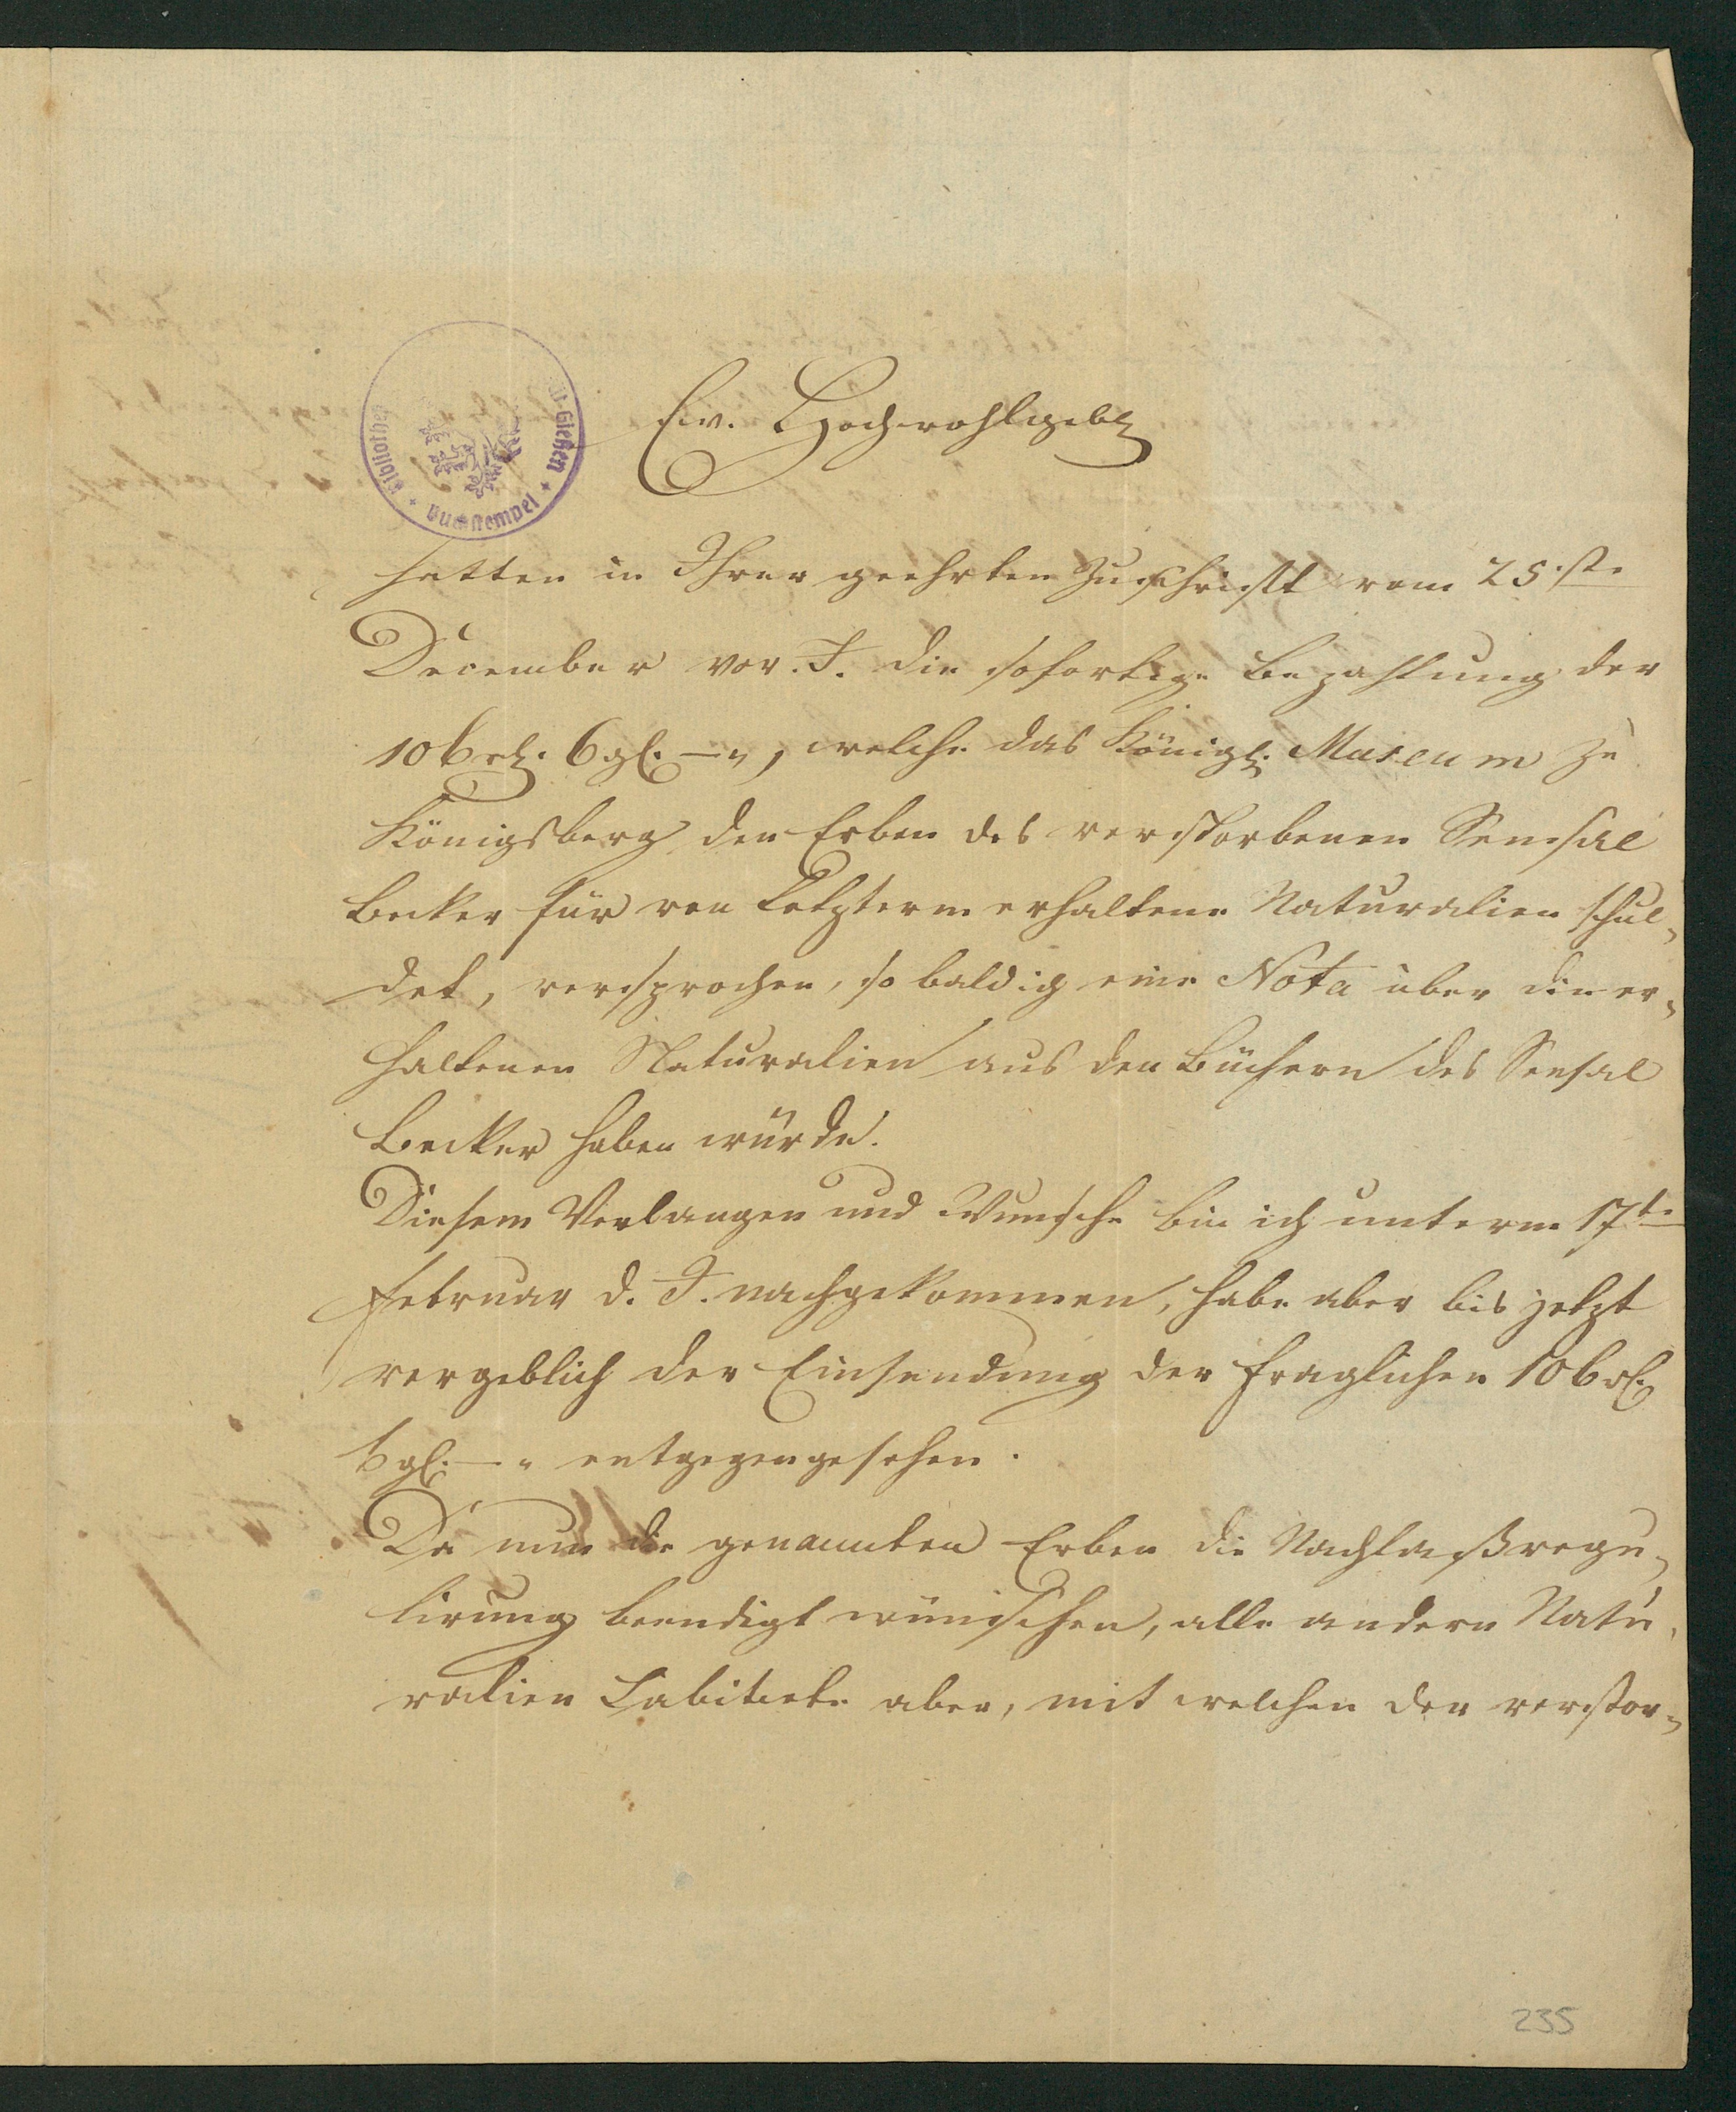 Ew. Hochwohlgeb.
hatten in Ihrer geehrten Zuschrift vom 25.ste
December vor. J. die sofortige Bezahlung der
106 rl. 6 gl. — „, welche das Königl. Museum zu
Königsberg den Erben des verstorbenen Sensal
Becker für von Letzterm erhaltene Naturalien schul-
det, versprochen, so baldig eine Nota über die er-
haltenen Naturalien aus den Büchern des Sensal
Becker haben würde.
Diesem Verlangen und Wunsche bin ich unterm 17te
Februar d. J. nachgekommen, habe aber bis jetzt
vergeblich der Einsendung der fraglichen 106 rl.
6 gl. — „ entgegengesehen.
Da nun die genannten Erben die Nachlaßregu-
lirung beendigt wünschen, alle andern Natu-
ralien Cabinete aber, mit welchen der verstor-
Bibliothek
-Gießen
Buchstempel
235